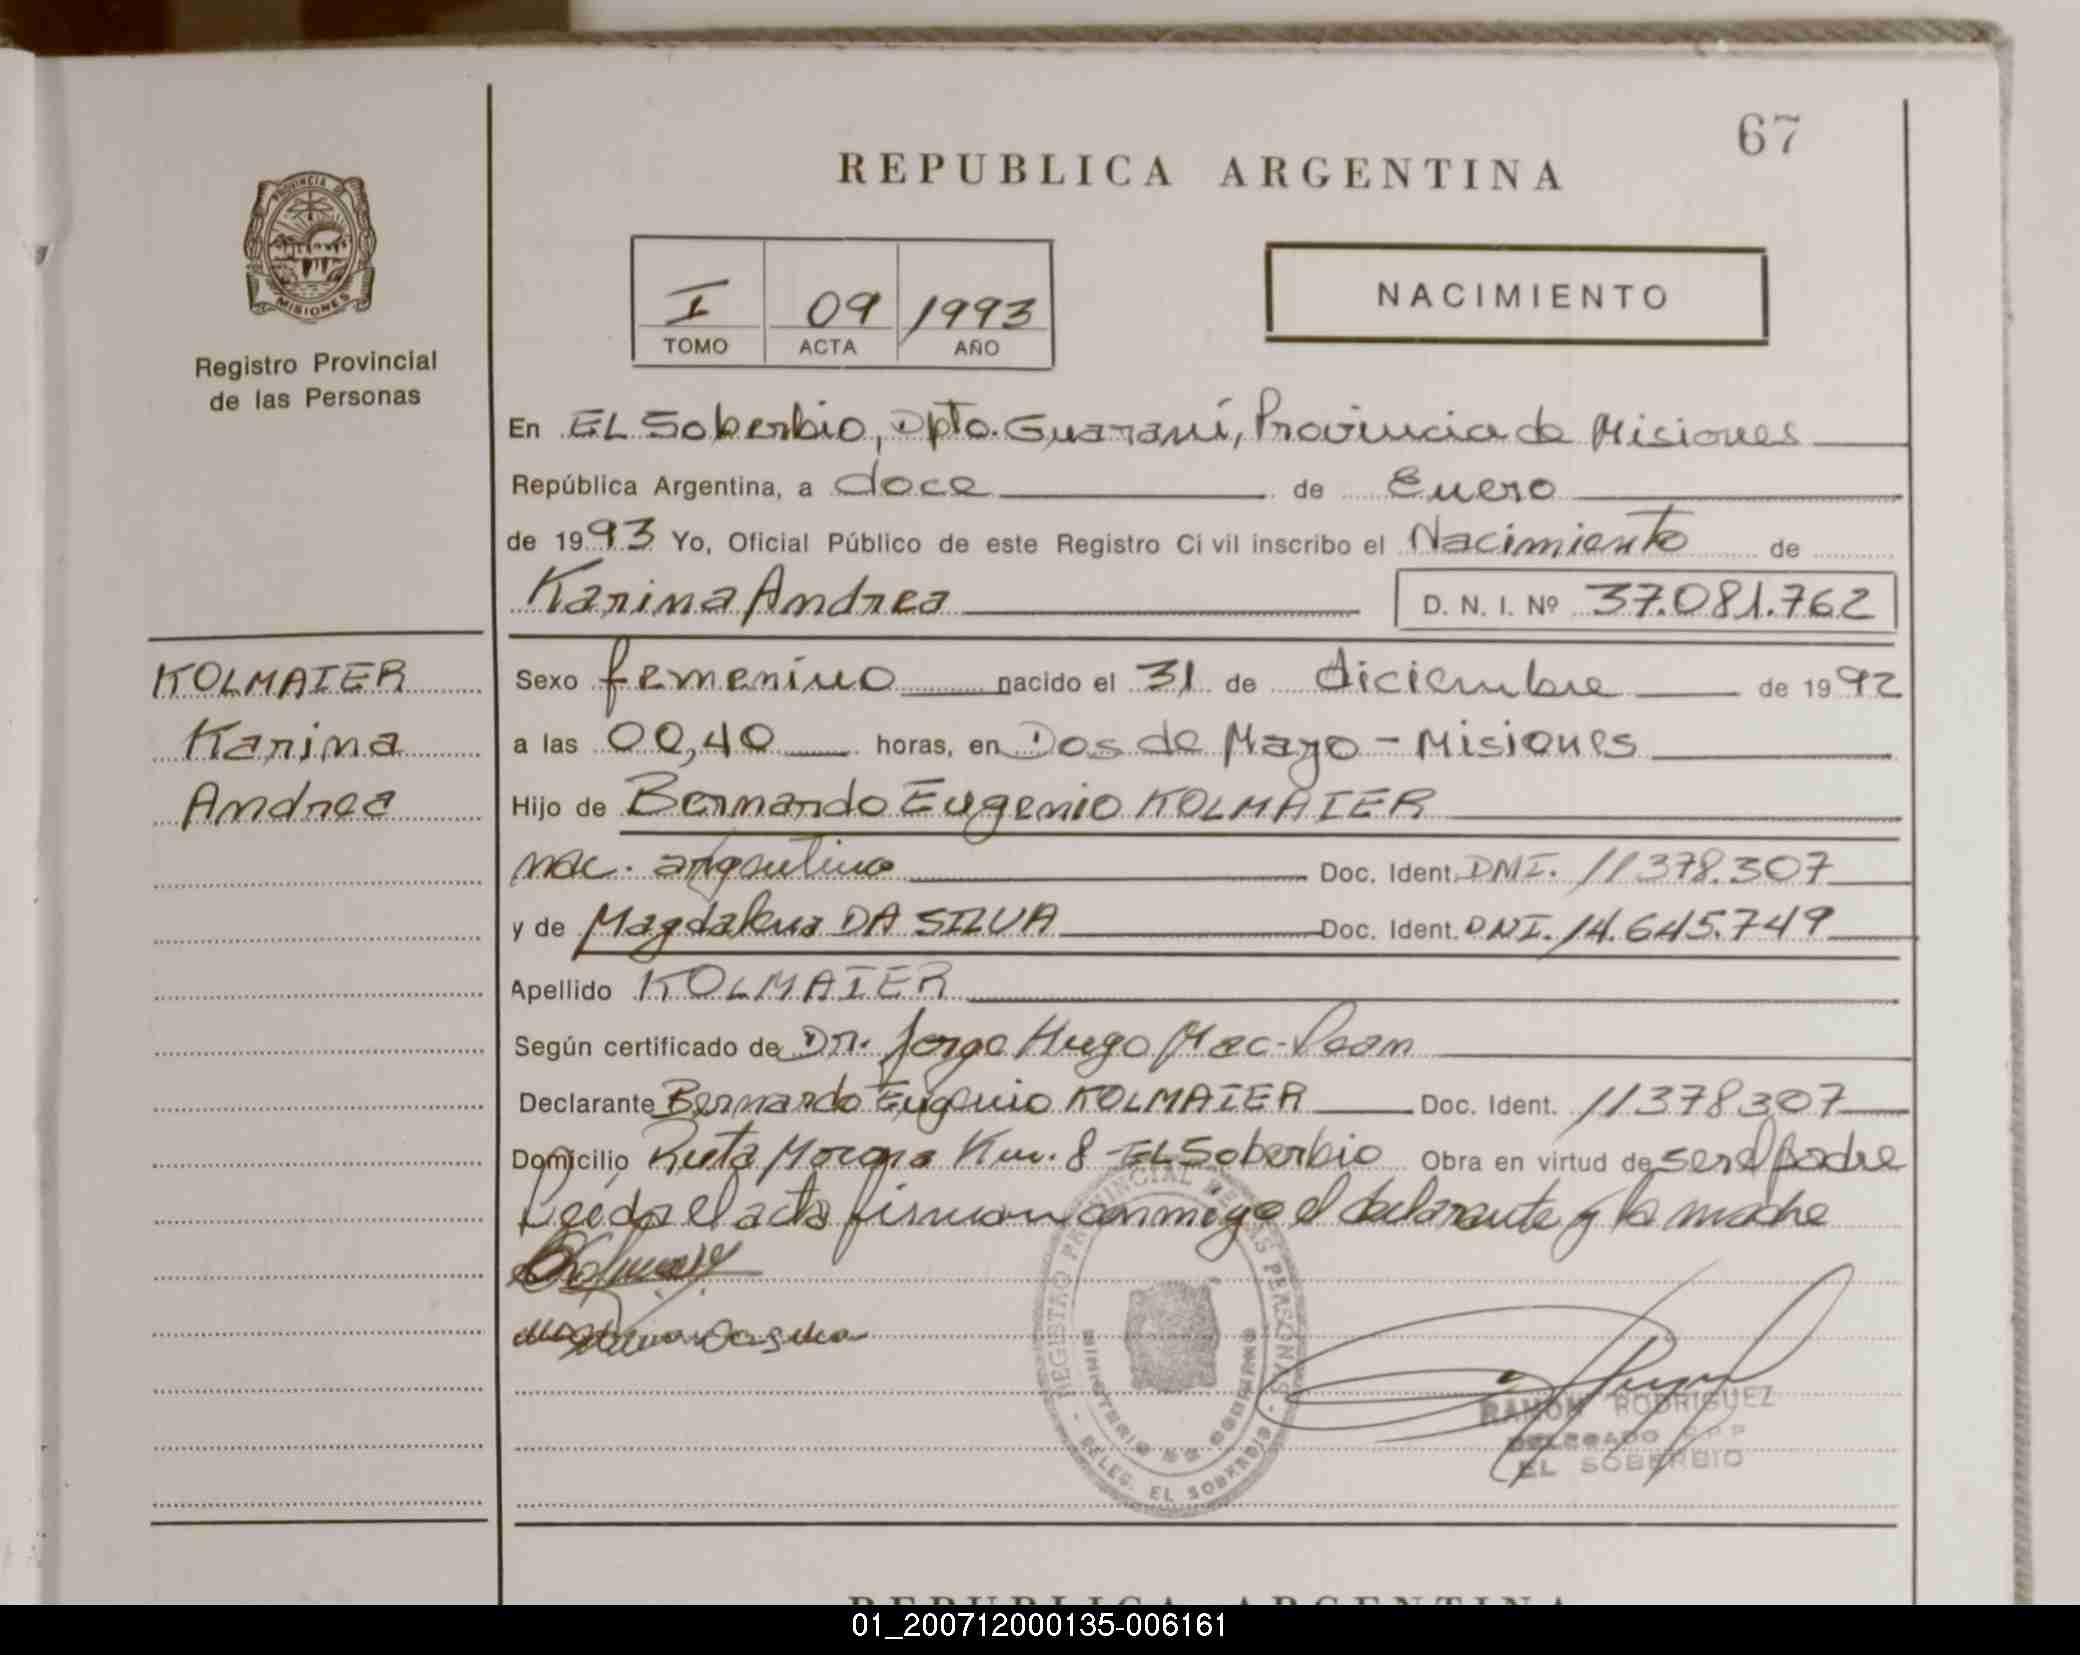 67
REPUBLICA ARGENTINA
PROVINCIA DE
MISIONES
Registro Provincial
de las Personas
I 09 1993
TOMO ACTA AÑO
NACIMIENTO
En EL Soberbio, Dpto. Guaraní, Provincia de Misiones
República Argentina, a doce de Enero
de 1993 Yo, Oficial Público de este Registro Ci vil inscribo el Nacimiento de
Karina Andrea D. N. I. Nº 37.081.762
KOLMAIER
Karina
Andrea
Sexo femenino nacido el 31 de diciembre de 1992
a las 00,40 horas, en Dos de Mayo - Misiones
Hijo de Bernardo Eugenio KOLMAIER
nac. argentino Doc. Ident. DNI. 11378.307
y de Magdalena DA SILVA Doc. Ident. DNI. 14.645.749
Apellido KOLMAIER
Según certificado de Dr. Jorge Hugo Mac-Lean
Declarante Bernardo Eugenio KOLMAIER Doc. Ident. 11378307
Domicilio Ruta Km. 8 - EL Soberbio Obra en virtud de ser el padre
Leída el acta firman conmigo el declarante y la madre
REGISTRO PROVINCIAL DE LAS PERSONAS
MINISTERIO DE GOBIERNO
- DELEG. EL SOBERBIO -
RAMON RODRIGUEZ
DELEGADO R P P
EL SOBERBIO
REPUBLICA ARGENTINA
01_200712000135-006161